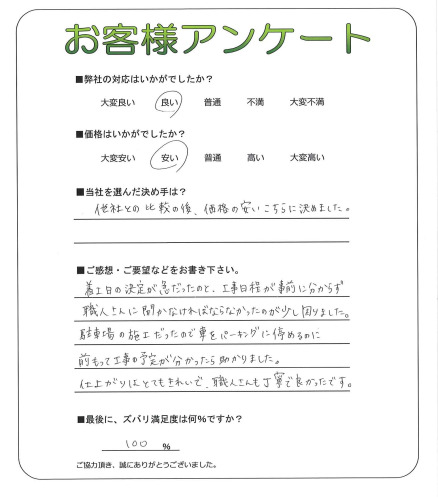 お客様アンケート
■弊社の対応はいかがでしたか？
大変良い 良い 普通 不満 大変不満
■価格はいかがでしたか？
大変安い 安い 普通 高い 大変高い
■当社を選んだ決め手は？
他社との比較の後、価格の安いこちらに決めました。
■ご感想・ご要望などをお書き下さい。
着工日の決定が急だったのと、工事日程が事前に分からず
職人さんに聞かなければならなかったのが少し困りました。
駐車場の施工だったので車をパーキングに停めるのに
前もって工事の予定が分かったら助かりました。
仕上がりはとてもきれいで、職人さんも丁寧で良かったです。
■最後に、ズバリ満足度は何％ですか？
100 %
ご協力頂き、誠にありがとうございました。